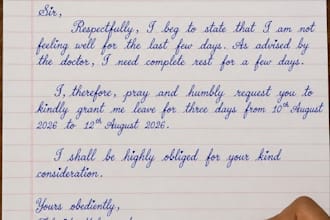 Sir,
Respectfully, I beg to state that I am not
feeling well for the last few days. As advised by
the doctor, I need complete rest for a few days.
I, therefore, pray and humbly request you to
kindly grant me leave for three days from 10th August
2026 to 12th August 2026.
I shall be highly obliged for your kind
consideration.
Yours obediently,